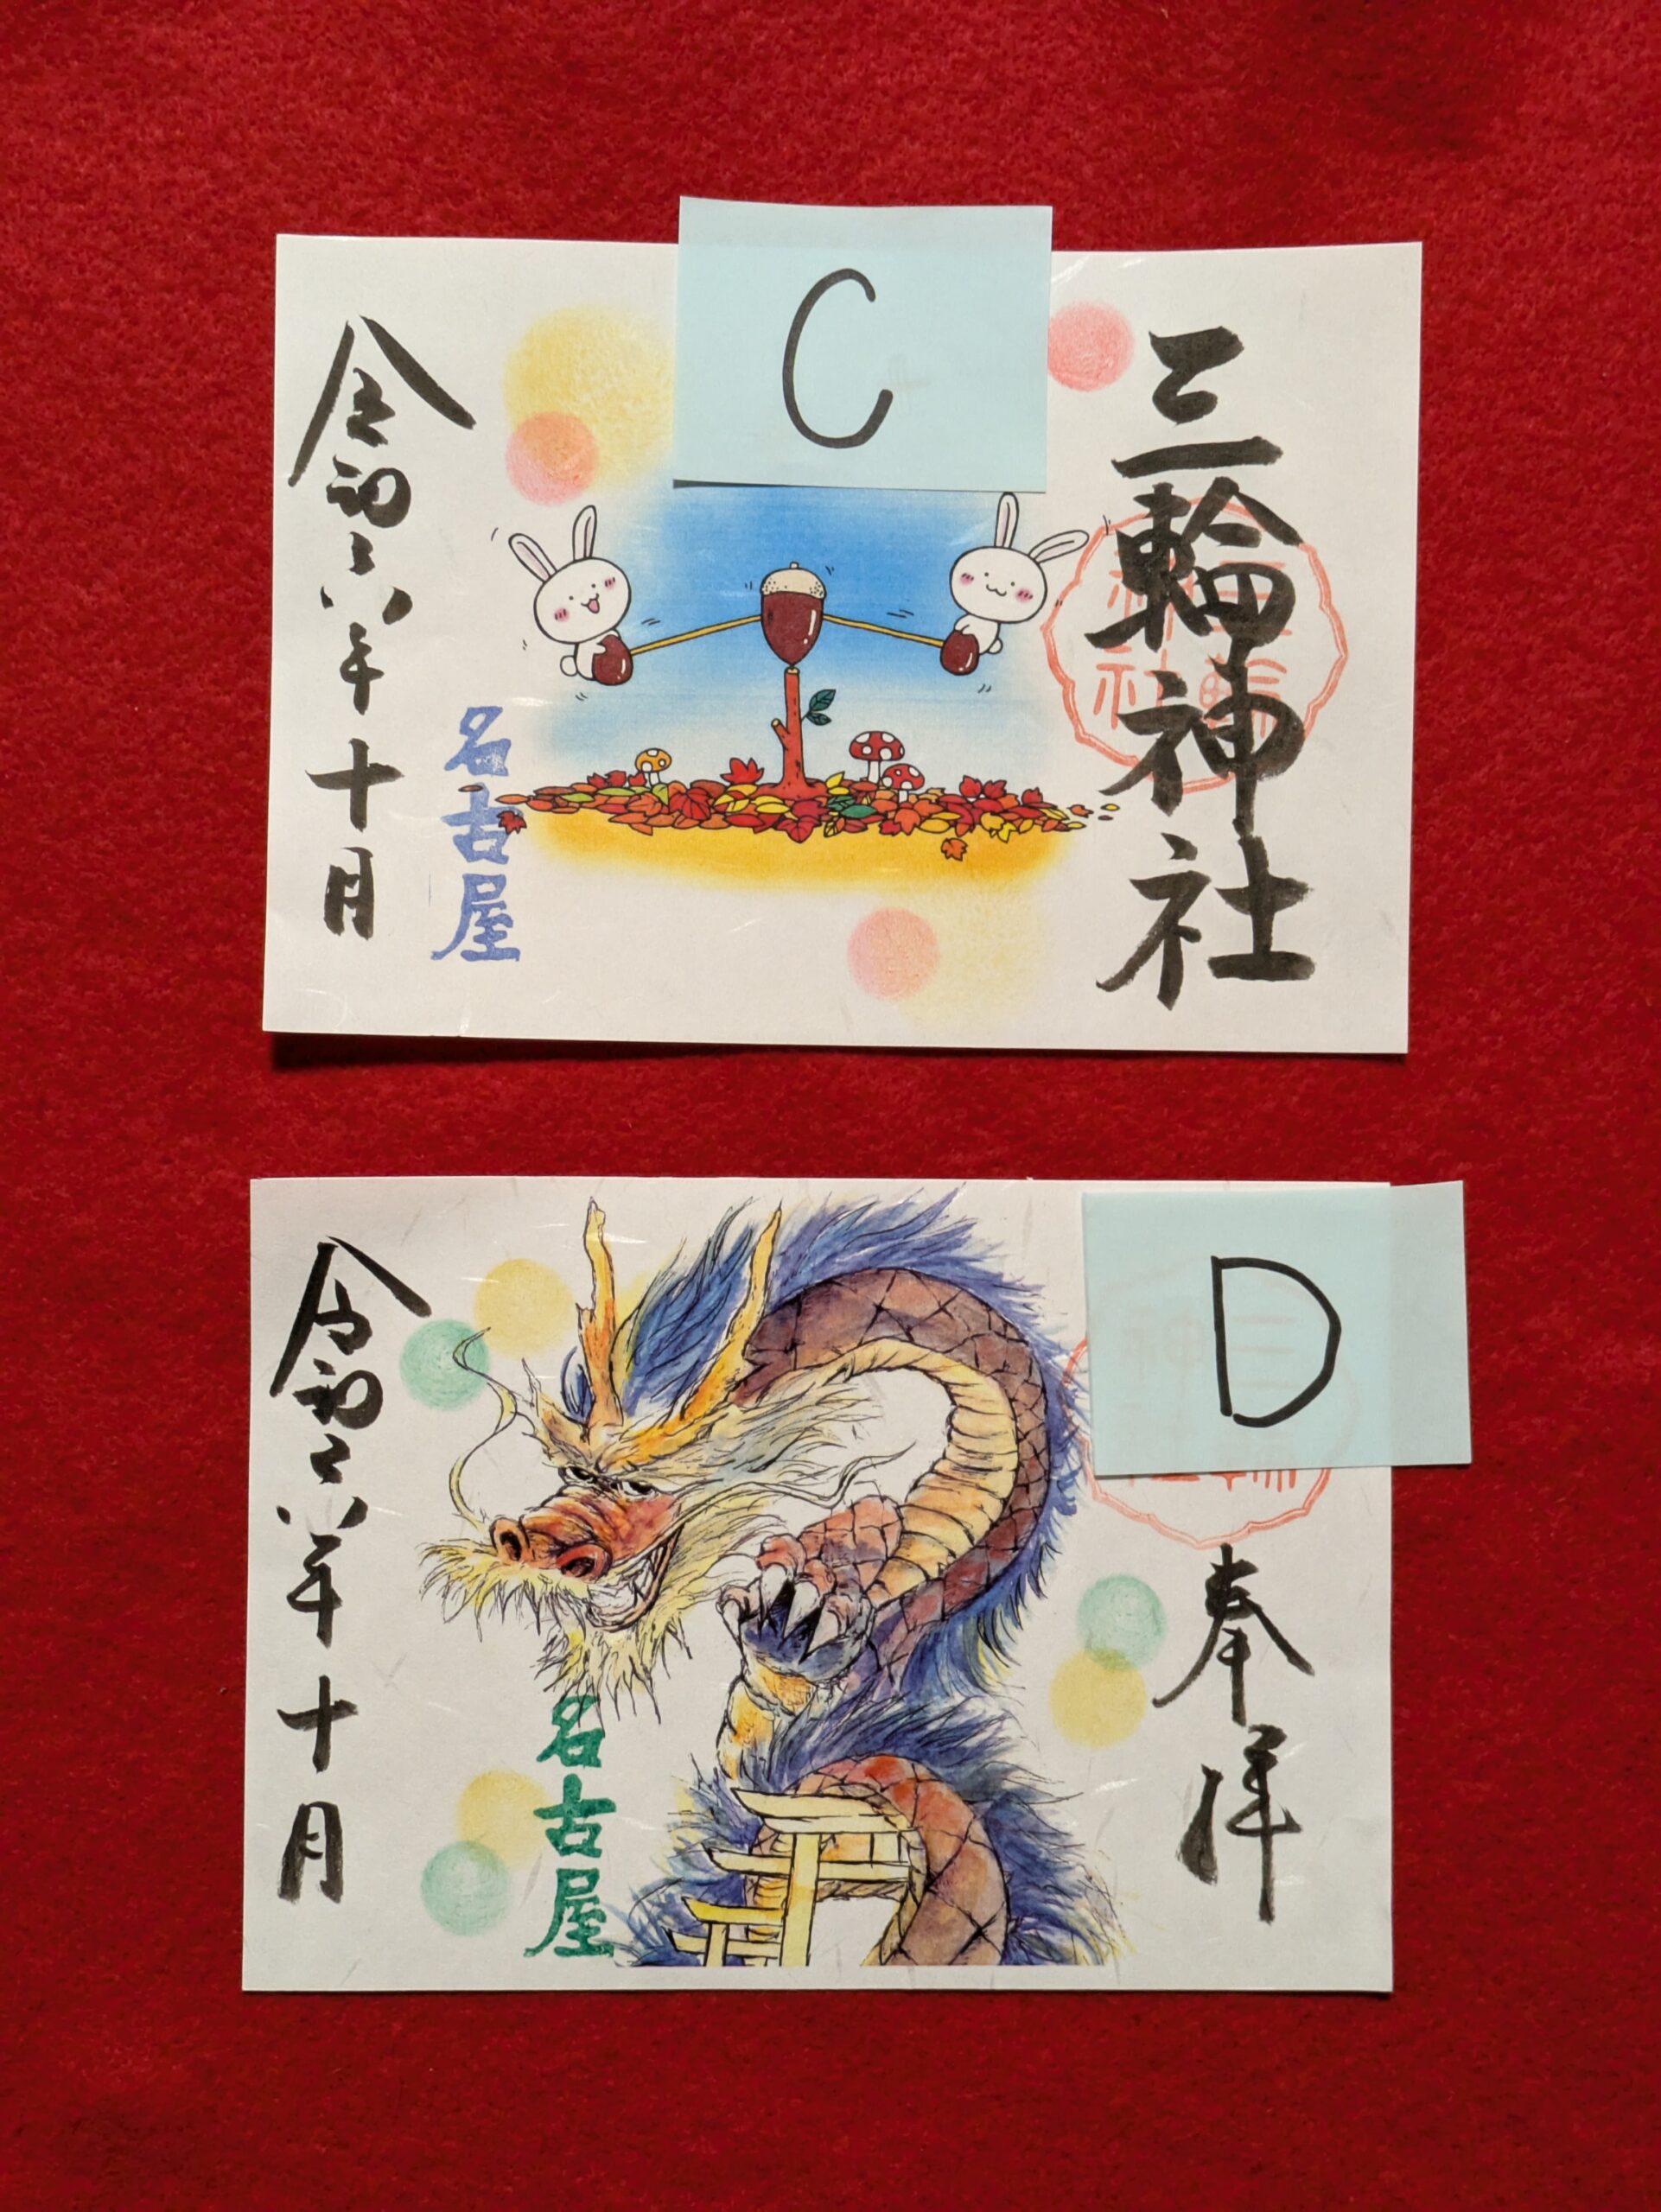 C
三輪神社
三輪神社
名古屋
令和六年十月
D
奉拝
名古屋
令和六年十月